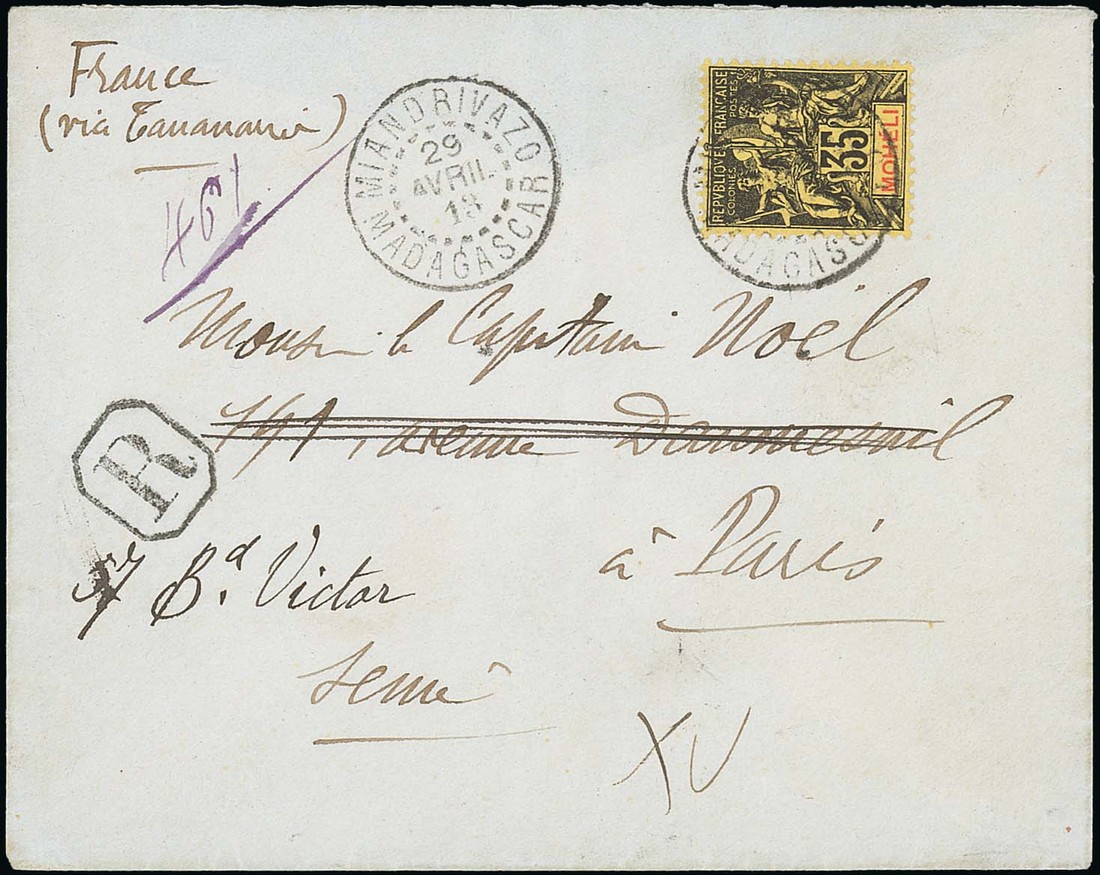 France
(via Tananarive)
461
MIANDRIVAZO
29
AVRIL
13
MADAGASCAR
REPVBLIQVE FRANÇAISE
COLONIES POSTES
35
MOHELI
DAGASC
Monsieur le Capitaine Noël
141, avenue Daumesnil
R
à Paris
37 Bd. Victor
Seine
XV